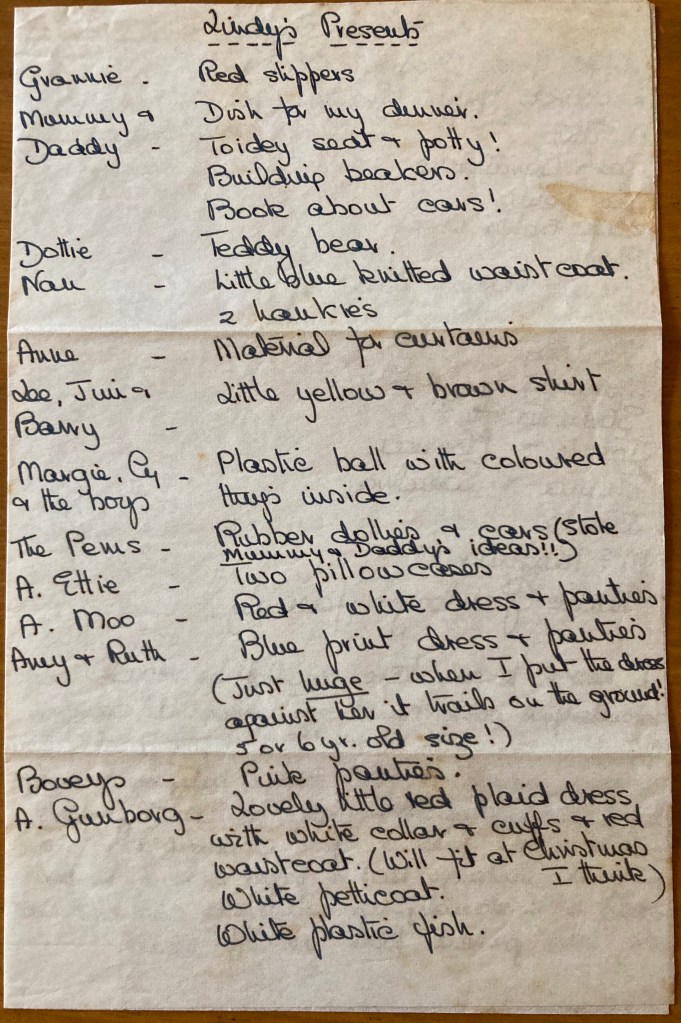 Lindy's Presents
Grannie - Red slippers
Mummy & Dish for my dinner.
Daddy - Toidey seat & potty!
Building beakers.
Book about cars!
Dottie - Teddy bear.
Nan - Little blue knitted waistcoat.
2 hankies
Anne - Material for curtains
Lee, Jim & Little yellow & brown shirt
Barry -
Margie, Cy - Plastic ball with coloured
& the boys things inside.
The Pems - Rubber dollies & cars (stole
Mummy & Daddy's ideas!!)
A. Ettie - Two pillowcases
A. Moo - Red & white dress & panties
Amy & Ruth - Blue print dress & panties
(Just huge - when I put the dress
against her it trails on the ground!
5 or 6 yr. old size!)
Boveys - Pink panties.
A. Gunborg - Lovely little red plaid dress
with white collar & cuffs & red
waistcoat. (Will fit at Christmas
I think)
White petticoat.
White plastic fish.